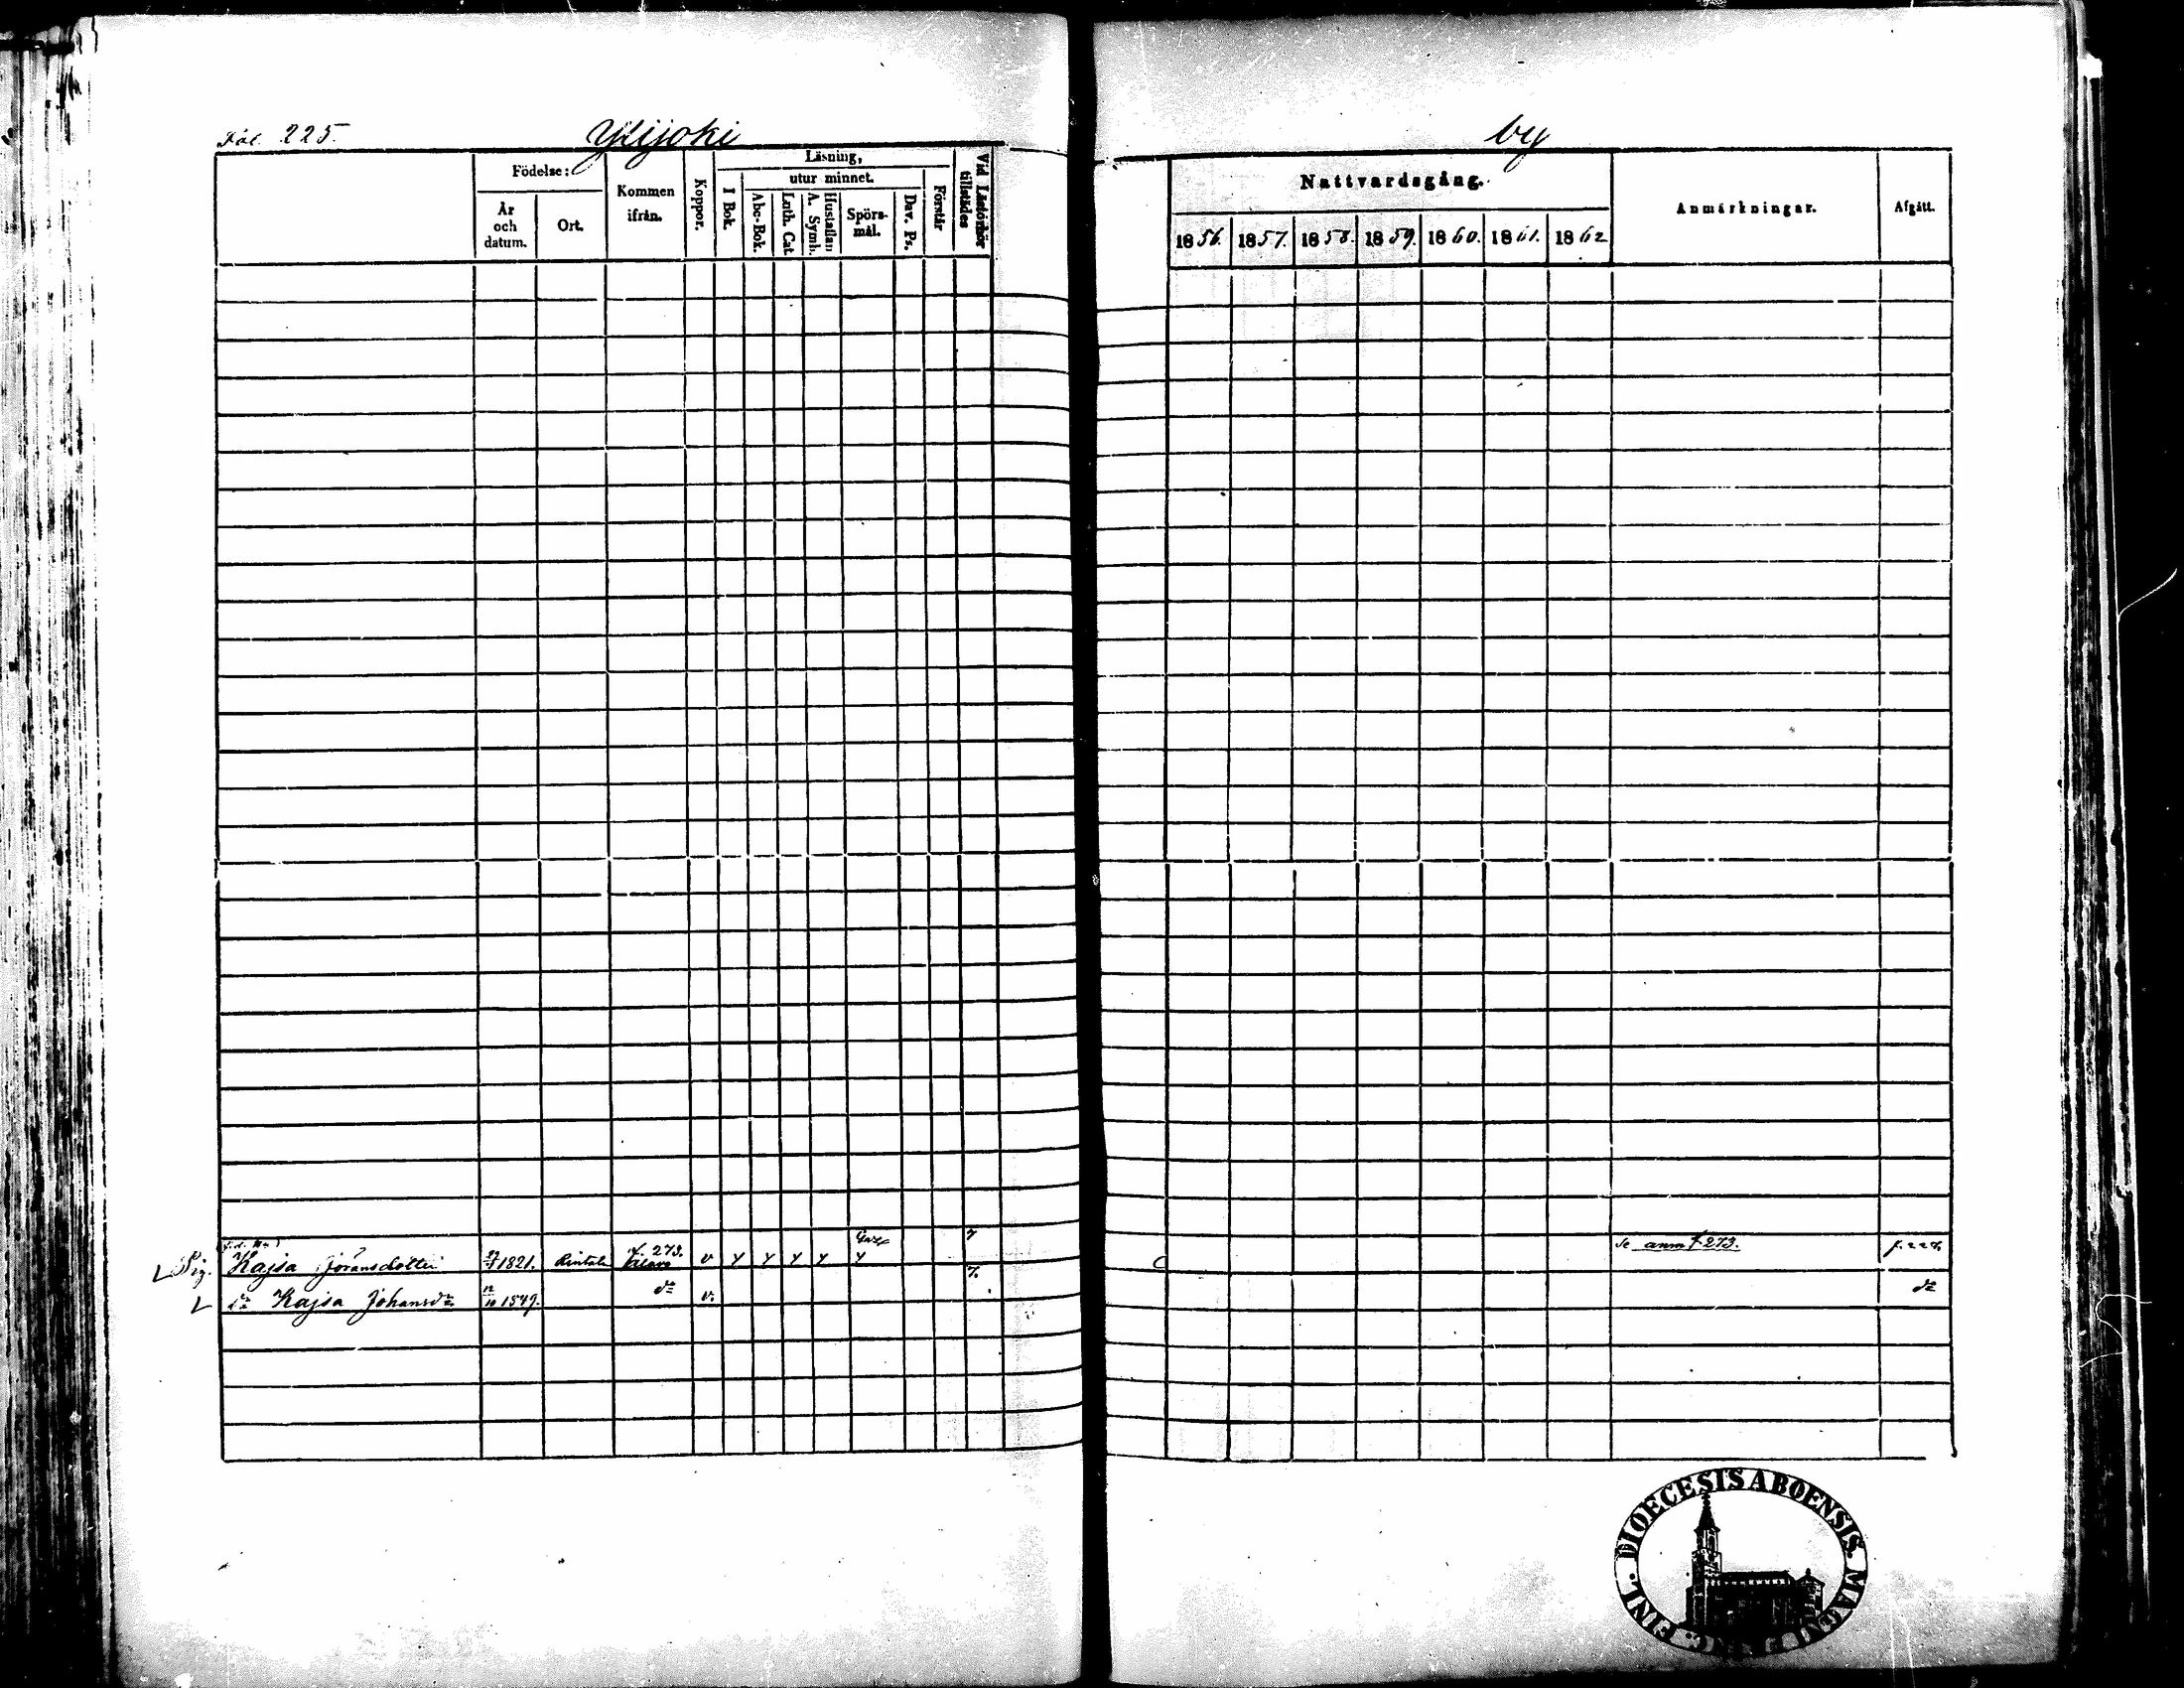 Fol. 225. Ylijoki by
Födelse:
År och datum.
Ort.
Kommen ifrån.
Koppor.
Läsning,
I Bok.
utur minnet.
Abc-Bok.
Luth. Cat.
Hustaflan A. Symb.
Spörs-mål.
Dav. Ps.
Förstår
Vid Läsförhör tillstädes
Nattvardsgång.
1856. 1857. 1858. 1859. 1860. 1861. 1862
Anmärkningar.
Afgått.
Pig. Kajsa Jöransdotter 1821. Rintala f. 273. v Se anm f 273.
Kajsa Johansdr 1849. do v. do
FINL. DIOECESIS ABOENSIS. MAGNI